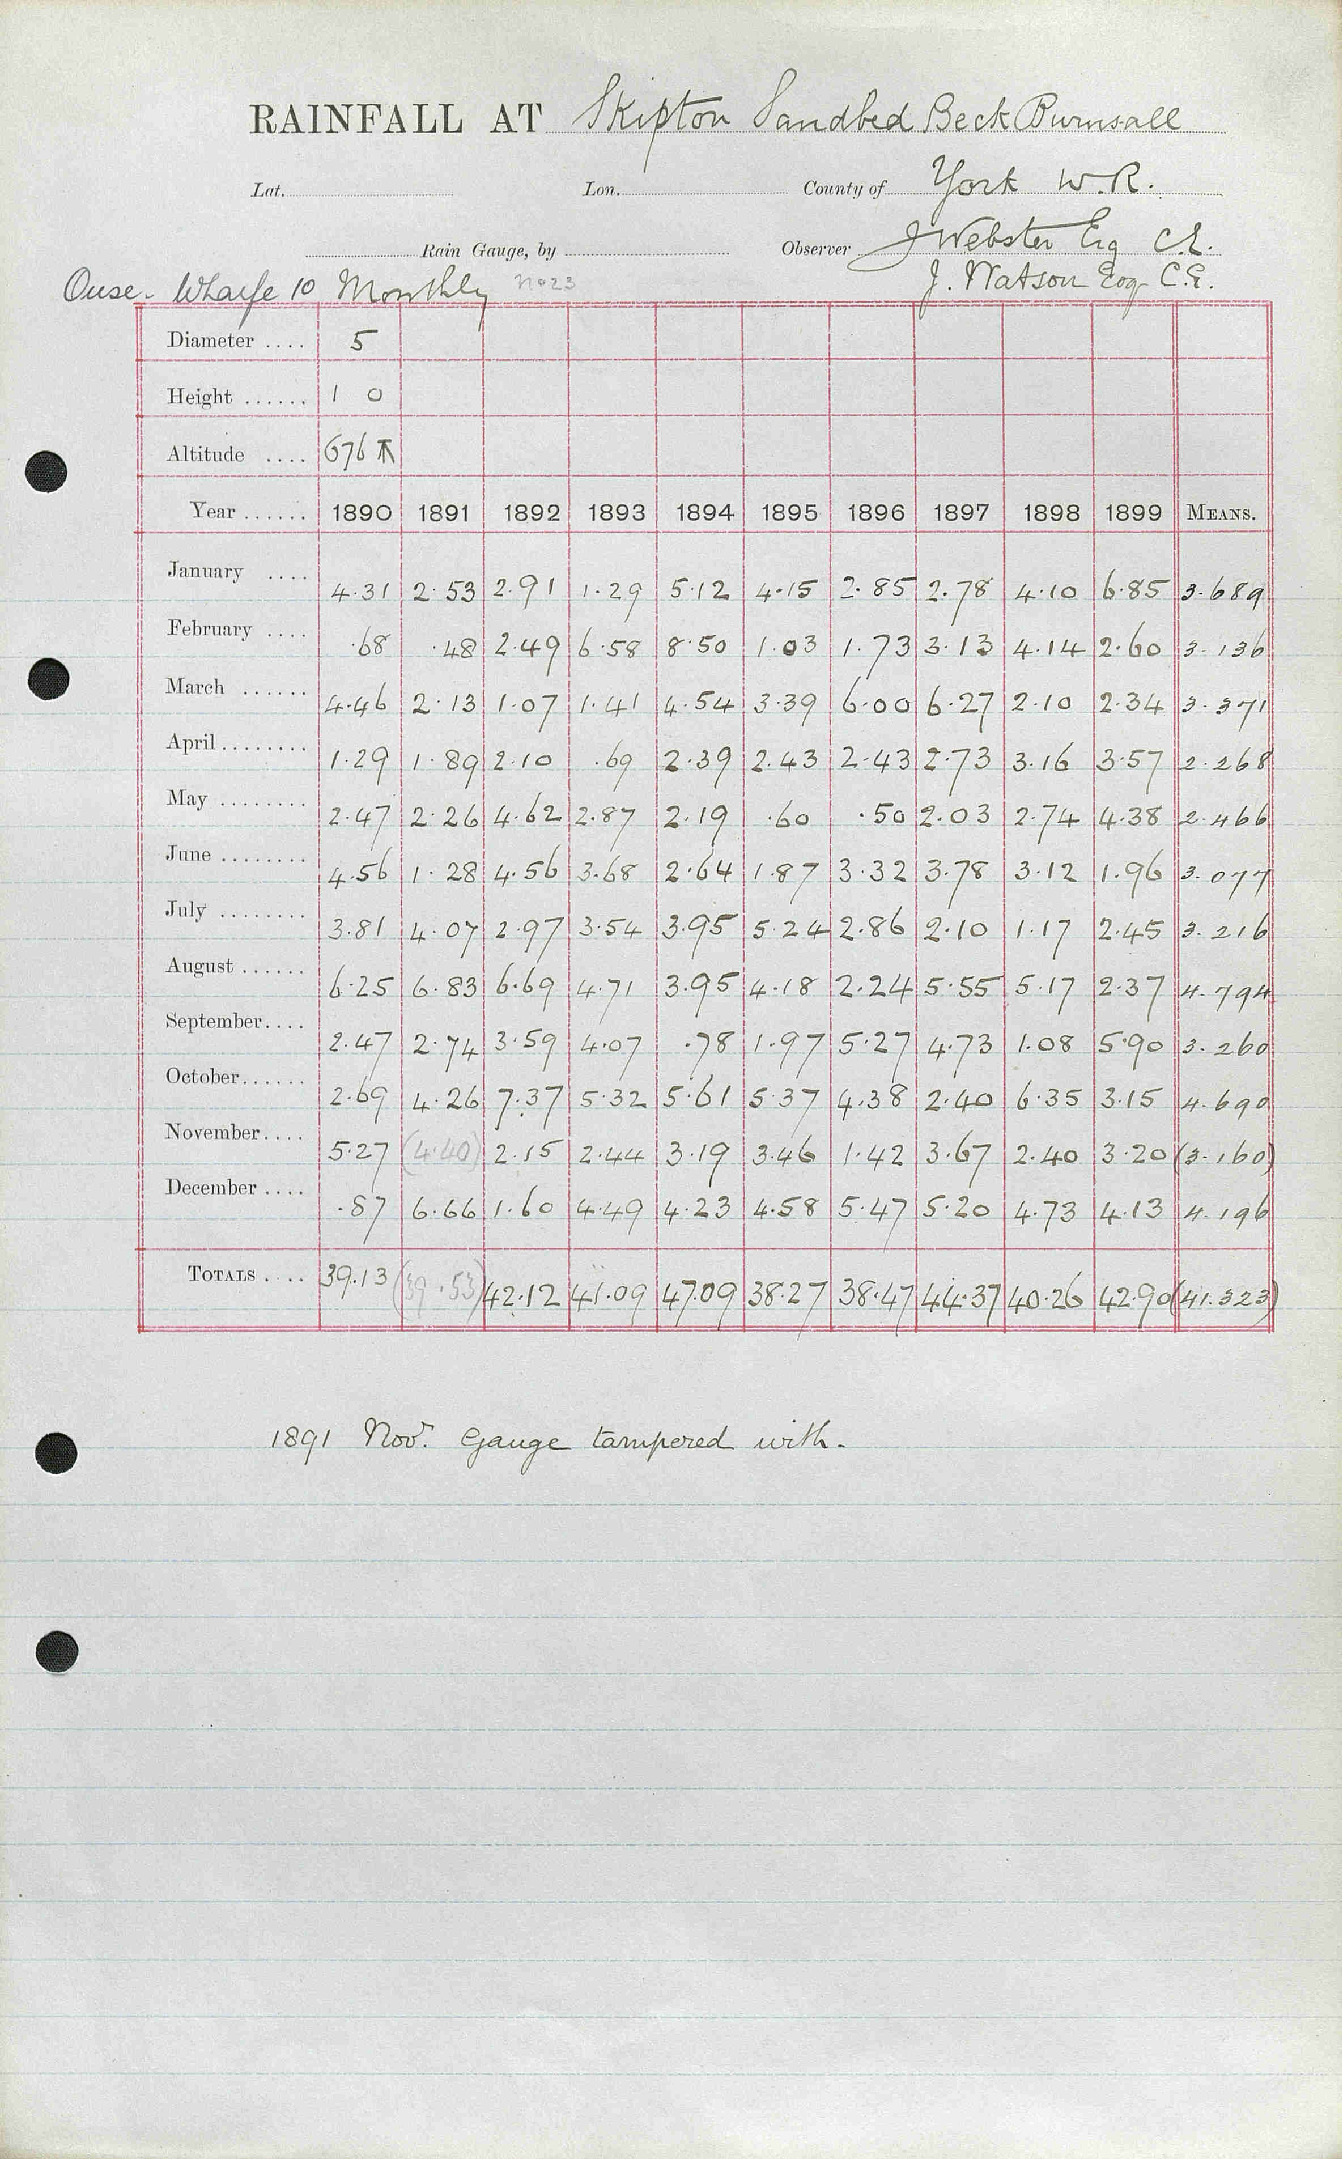 RAINFALL AT Skipton Sandbed Beck Burnsall
Lat. Lon. County of York W.R.
Rain Gauge, by Observer J Webster Esq C.E.
Ouse - Wharfe 10 Monthly No 23 J. Watson Esq C.E.
Diameter .... 5
Height ...... 1 0
Altitude .... 676
Year ...... 1890 1891 1892 1893 1894 1895 1896 1897 1898 1899 MEANS.
January .... 4.31 2.53 2.91 1.29 5.12 4.15 2.85 2.78 4.10 6.85 3.689
February .... .68 .48 2.49 6.58 8.50 1.03 1.73 3.13 4.14 2.60 3.136
March ...... 4.46 2.13 1.07 1.41 4.54 3.39 6.00 6.27 2.10 2.34 3.371
April ........ 1.29 1.89 2.10 .69 2.39 2.43 2.43 2.73 3.16 3.57 2.268
May ........ 2.47 2.26 4.62 2.87 2.19 .60 .50 2.03 2.74 4.38 2.466
June ........ 4.56 1.28 4.56 3.68 2.64 1.87 3.32 3.78 3.12 1.96 3.077
July ........ 3.81 4.07 2.97 3.54 3.95 5.24 2.86 2.10 1.17 2.45 3.216
August ...... 6.25 6.83 6.69 4.71 3.95 4.18 2.24 5.55 5.17 2.37 4.794
September .... 2.47 2.74 3.59 4.07 .78 1.97 5.27 4.73 1.08 5.90 3.260
October ...... 2.69 4.26 7.37 5.32 5.61 5.37 4.38 2.40 6.35 3.15 4.690
November .... 5.27 (4.40) 2.15 2.44 3.19 3.46 1.42 3.67 2.40 3.20 (3.160)
December .... .87 6.66 1.60 4.49 4.23 4.58 5.47 5.20 4.73 4.13 4.196
TOTALS .... 39.13 (39.53) 42.12 41.09 47.09 38.27 38.47 44.37 40.26 42.90 (41.323)
1891 Nov.r Gauge tampered with.